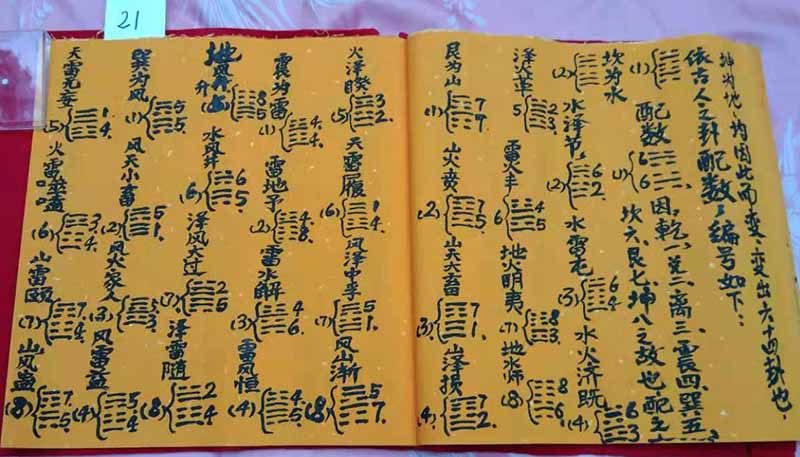 21
坤为地、均因此而变、变出六十四卦也、
依古人之卦配数、编号如下:
配数
因:乾一、兑二、离三、震四、巽五、
坎六、艮七、坤八之故也、配之
(1) 6 6
坎为水
(2)
水泽节
(2) 6 2
水雷屯
(3) 6 4
水火济既
(4) 6 3
泽火革
5 2 3
雷火丰
6 4 5
地火明夷
(7) 8 3
地水师
(8) 8 6
艮为山
(1) 7 7
山火贲
(2) 7 5
山天大畜
(3) 7 1
山泽损
(4) 7 2
火泽睽
(5) 3 2
天雷履
(6) 1 4
风泽中孚
(7) 5 1
风山渐
(8) 5 7
震为雷
(1) 4 4
雷地予
(2) 4 8
雷水解
(3) 4 6
雷风恒
(4) 4 5
地风升
8 5
水风井
(6) 6 5
泽风大过
(7) 2 5
泽雷随
(8) 2 4
巽为风
(1) 5 5
风天小畜
(2) 5 1
风火家人
(3) 5 3
风雷益
(4) 5 4
天雷无妄
(5) 1 4
火雷噬嗑
(6) 3 4
山雷颐
(7) 7 4
山风蛊
(8) 7 5